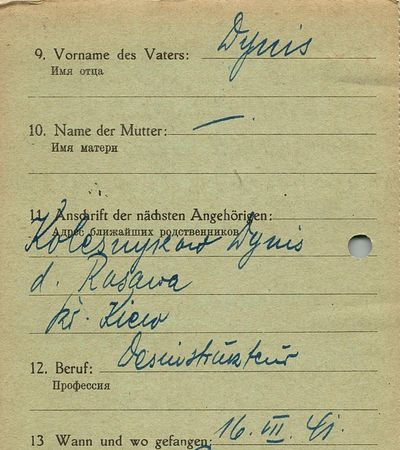 9. Vorname des Vaters: Dynis
Имя отца
10. Name der Mutter: —
Имя матери
11. Anschrift der nächsten Angehörigen:
Адрес ближайших родственников
Kolesnykow Dynis
d. Rasawa
kr. Kiew
12. Beruf: Desinstrukteur
Профессия
13 Wann und wo gefangen: 16. VII. 41.